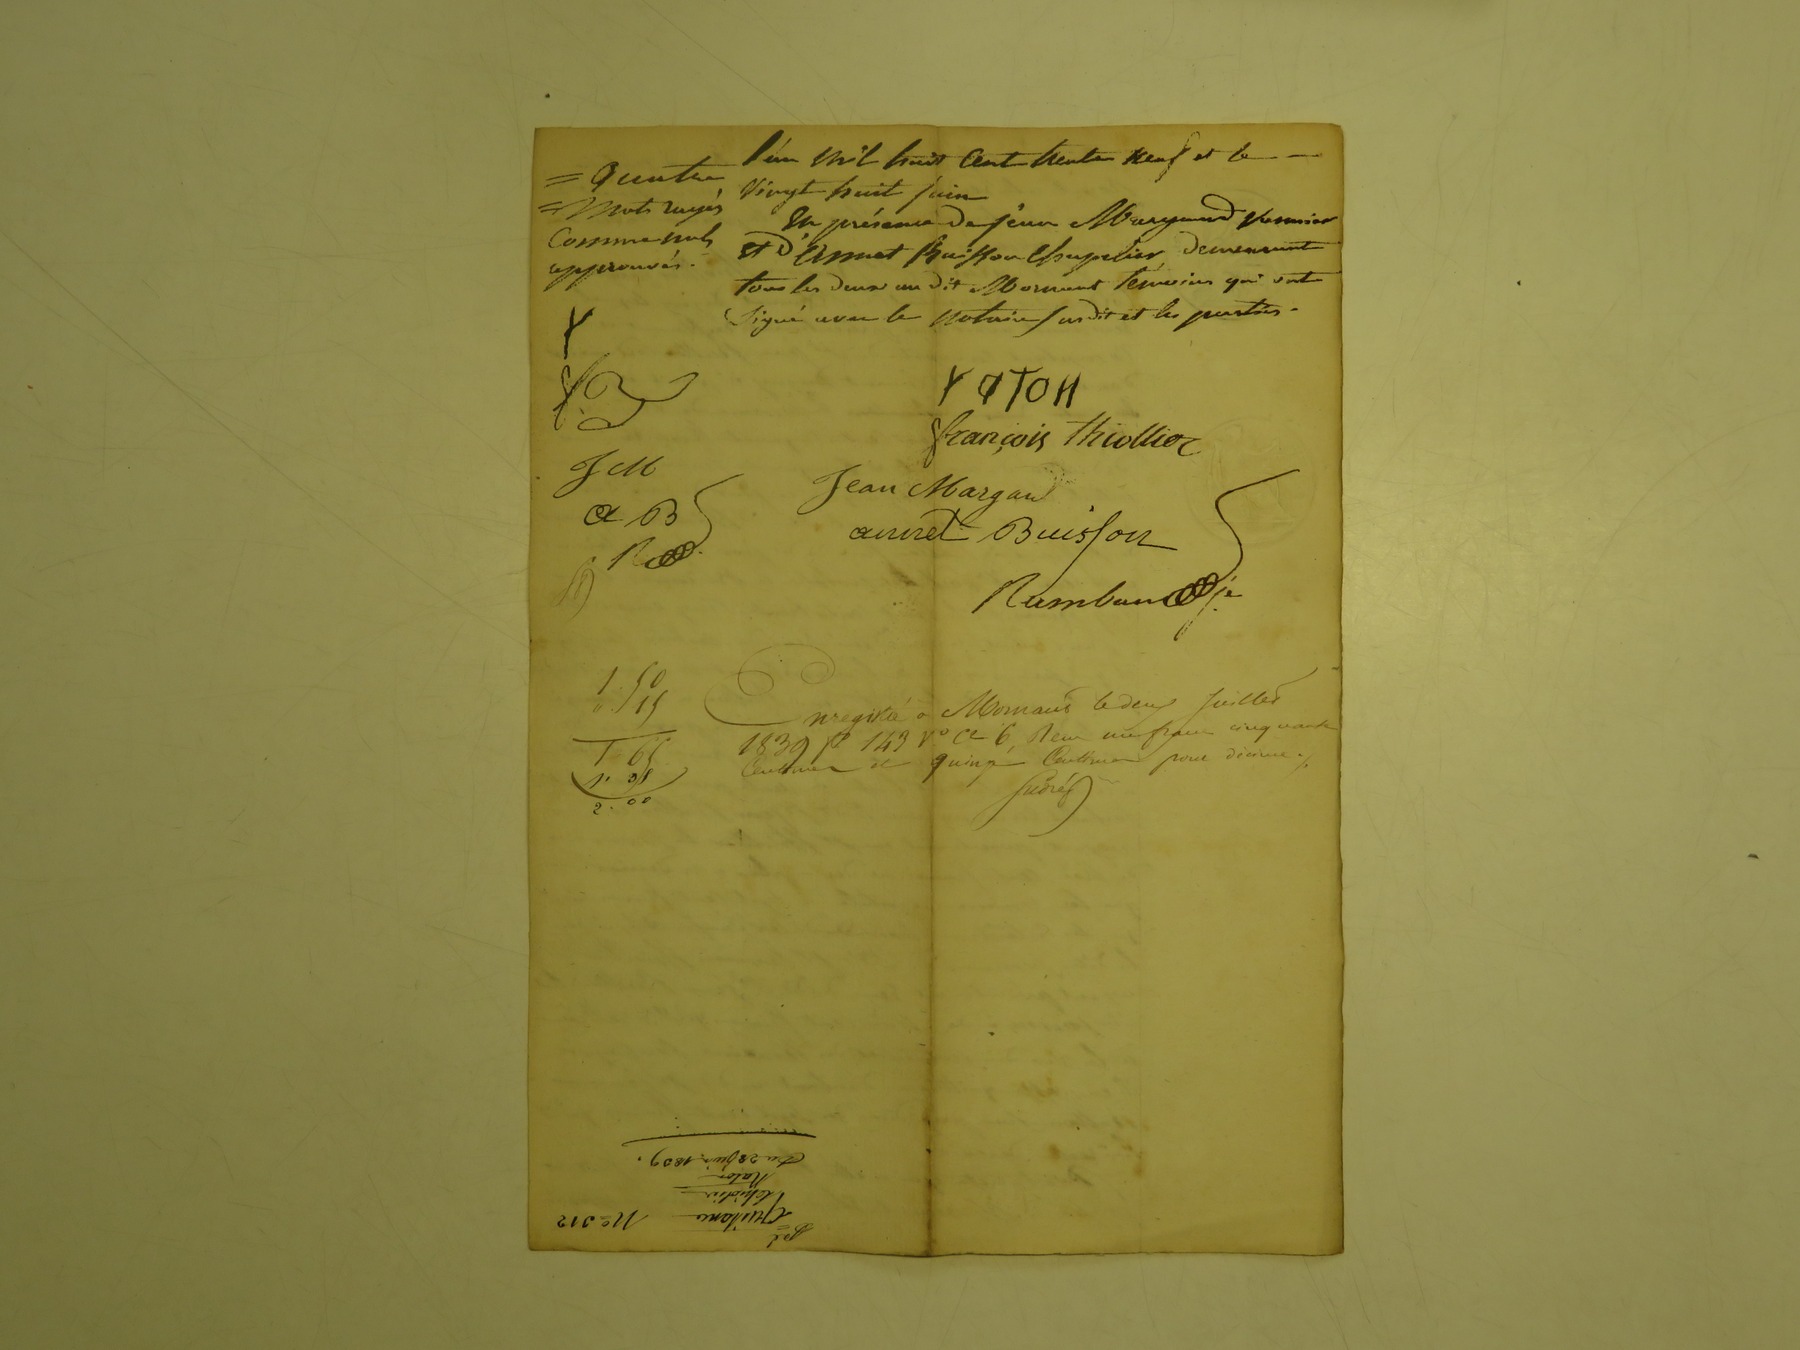 l'an mil huit cent trente neuf et le —
vingt huit juin
En présence de Jean Margand vannier
et d'Annet Buisson chapelier, demeurant
tous les deux au dit Mornant témoins qui ont
signé avec le notaire susdit et les parties.
= Quatre
= mots rayés
comme nuls
approuvés.
Y
J M
a B
R
François Thiollier
Jean Margand
annet Buisson
Rambaud
1.50
15
1 65
2.00
Enregistré à Mornant le deux juillet
1839 f° 149 v° C 6, Reçu un franc cinquante
Centimes et quinze Centimes pour dixième.
N° 312
Quittance
Thiollier
du 28 juin 1839.